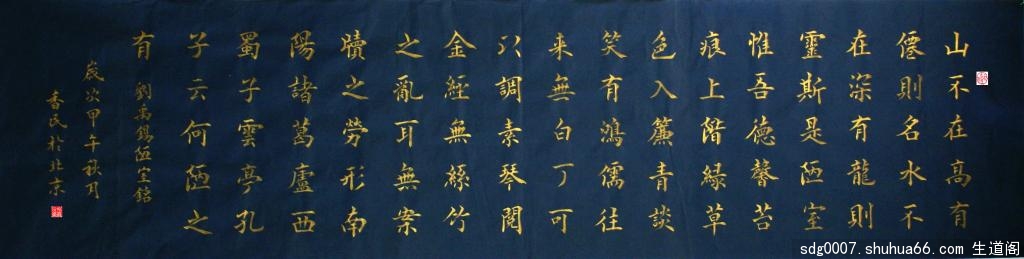 山不在高有
僊則名水不
在深有龍則
靈斯是陋室
惟吾德馨苔
痕上階緑草
色入簾青談
笑有鴻儒往
来無白丁可
以調素琴閲
金經無絲竹
之亂耳無案
牘之勞形南
陽諸葛廬西
蜀子雲亭孔
子云何陋之
有
劉禹錫陋室銘
歲次甲午秋月
香民於北京
sdg0007.shuhua66.com 生道阁